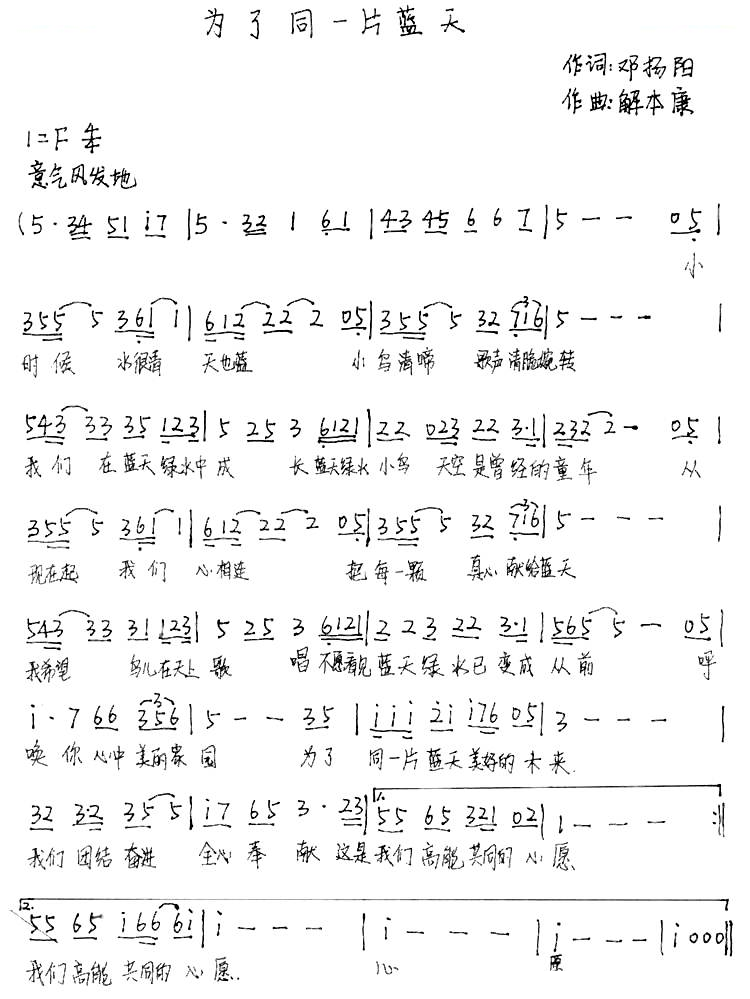 为了同一片蓝天
作词:邓扬阳
作曲:解本康
1=F 4/4
意气风发地
(5·34 51 i7|5·32 1 61|43 45 6 6 7|5 - - 05|
小
355 5 361 1|612 22 2 05|355 5 32 716|5 - - - |
时候 水很清 天也蓝 小鸟清啼 歌声清脆婉转
543 33 35 123|5 25 3 6121|22 023 22 3·1|232 2 - 05|
我们 在蓝天绿水中成 长蓝天绿水小鸟 天空是曾经的童年 从
355 5 361 1|612 22 2 05|355 5 32 716|5 - - - |
现在起 我们 心相连 把每一颗 真心献给蓝天
543 33 31 123|5 25 3 6121|2 23 22 3·1|565 5 - 05|
我希望 鸟儿在天上歌 唱不愿看见蓝天绿水已变成从前 呼
i·7 66 356|5 - - 35|iii 2i i76 05|3 - - - |
唤你心中美丽家园 为了 同一片蓝天美好的未来.
32 3·2 35 5|i7 65 3·23|1. 55 65 321 02|1 - - - :||
我们团结奋进 全心奉 献 这是我们高能共同的心愿
2. 55 65 i66 6i|i - - - |i - - - |i - - - |i000||
我们高能共同的心愿. 心 愿